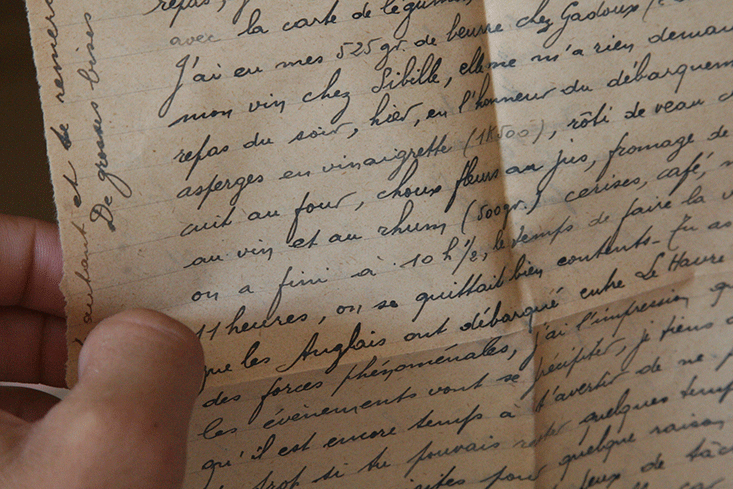 repas, j'
avec la carte de légumes
J'ai eu mes 525 gr. de beurre chez Gadoux
mon vin chez Sibille, elle ne m'a rien deman
repas du soir, hier, en l'honneur du débarquem
asperges en vinaigrette (1K500), rôti de veau
cuit au four, choux fleurs au jus, fromage de
au vin et au rhum (500gr.) cerises, café,
on a fini à 10 h 1/2, le temps de faire la v
11 heures, on se quittait bien contents - Tu as
que les Anglais ont débarqué entre Le Havre
des forces phénoménales, j'ai l'impression q
les évènements vont se précipiter, je tiens
qu'il est encore temps à t'avertir de ne p
trop si tu pouvais rester quelques temp
pour quelque raison
de tâc
car
autant et te remer
De grosses bises